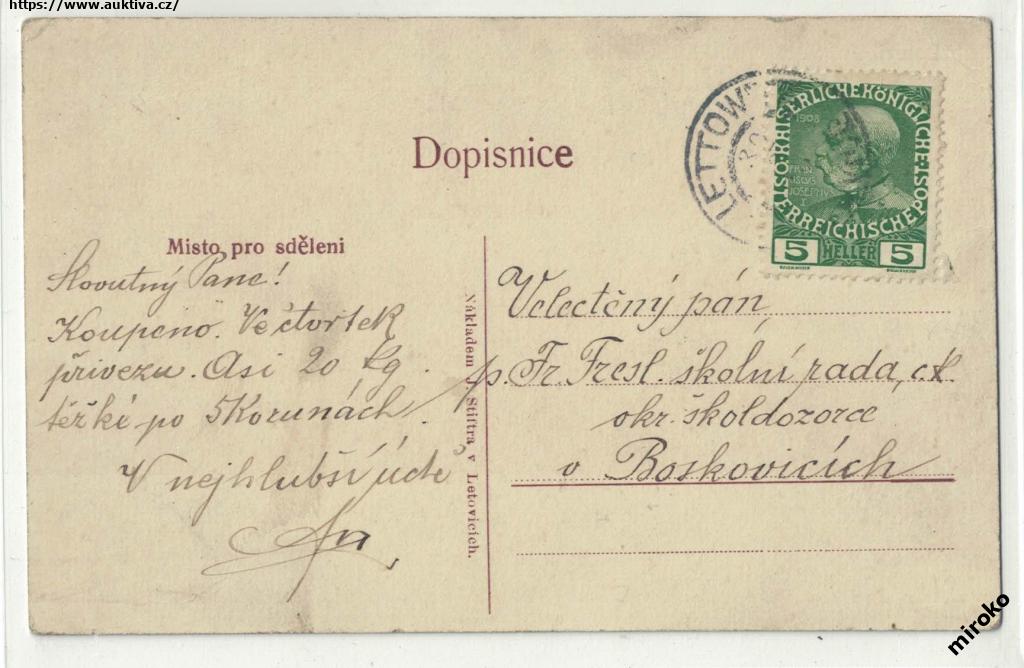 https://www.auktiva.cz/
Dopisnice
LETTOW
ÖSTERREICHISCHE POST KAISERLICHE KÖNIGLICHE
1908
5 HELLER 5
Misto pro sděleni
Slovutný Pane!
Koupeno. Ve čtvrtek
přivezu. Asi 20 kg
těžké po 5 Korunách
V nejhlubší úctě
Nákladem Stiftra v Letovicích.
Velectěný pán
p. Fr. Fresl. školní rada, c.k.
okr. školdozorce
v Boskovicích
miroko